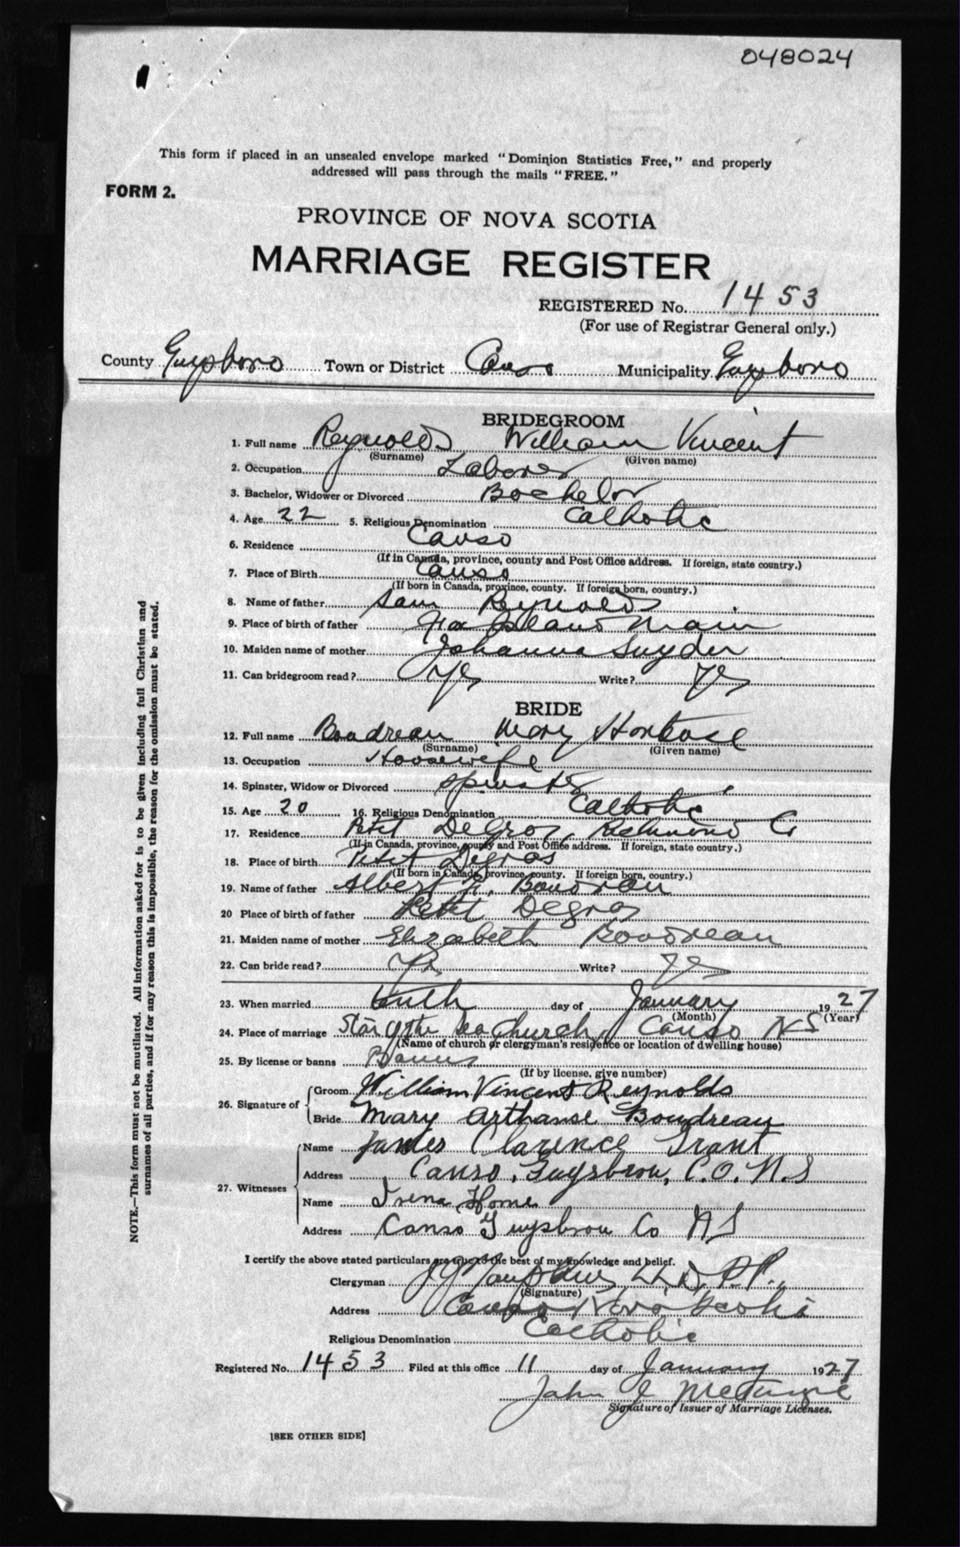 048024
This form if placed in an unsealed envelope marked "Dominion Statistics Free," and properly
addressed will pass through the mails "FREE."
FORM 2.
PROVINCE OF NOVA SCOTIA
MARRIAGE REGISTER
REGISTERED No. 1453
(For use of Registrar General only.)
County Guysboro Town or District Canso Municipality Guysboro
BRIDEGROOM
1. Full name Reynolds William Vincent
(Surname) (Given name)
2. Occupation Laborer
3. Bachelor, Widower or Divorced Bachelor
4. Age 22 5. Religious Denomination Catholic
6. Residence Canso
(If in Canada, province, county and Post Office address. If foreign, state country.)
7. Place of Birth Canso
(If born in Canada, province, county. If foreign born, country.)
8. Name of father Sam Reynolds
9. Place of birth of father Fox Island Main
10. Maiden name of mother Johanna Snyder
11. Can bridegroom read? Yes Write? Yes
BRIDE
12. Full name Boudreau Mary
(Surname) (Given name)
13. Occupation Housewife
14. Spinster, Widow or Divorced Spinster
15. Age 20 16. Religious Denomination Catholic
17. Residence Petit DeGras, Richmond Co
(If in Canada, province, county and Post Office address. If foreign, state country.)
18. Place of birth Petit Degras
(If born in Canada province, county. If foreign born, country.)
19. Name of father Albert Boudreau
20 Place of birth of father Petit Degras
21. Maiden name of mother Elizabeth Boudreau
22. Can bride read? Yes Write? Yes
23. When married tenth day of January 1927
(Month) (Year)
24. Place of marriage Star of the Sea Church, Canso NS
(Name of church or clergyman's residence or location of dwelling house)
25. By license or banns Banns
(If by license, give number)
26. Signature of Groom William Vincent Reynolds
Bride Mary Arthanse Boudreau
27. Witnesses Name James Clarence Grant
Address Canso, Guysbrou, C.O. N.S
Name Irena Horne
Address Canso Guysbrou Co NS
I certify the above stated particulars are true to the best of my knowledge and belief.
Clergyman LL.D. P.P.,
(Signature)
Address Canso Nova Scotia
Religious Denomination Catholic
Registered No. 1453 Filed at this office 11 day of January 1927
John J
Signature of Issuer of Marriage Licenses.
[SEE OTHER SIDE]
NOTE.—This form must not be mutilated. All information asked for is to be given including full Christian and
surnames of all parties, and if for any reason this is impossible, the reason for the omission must be stated.